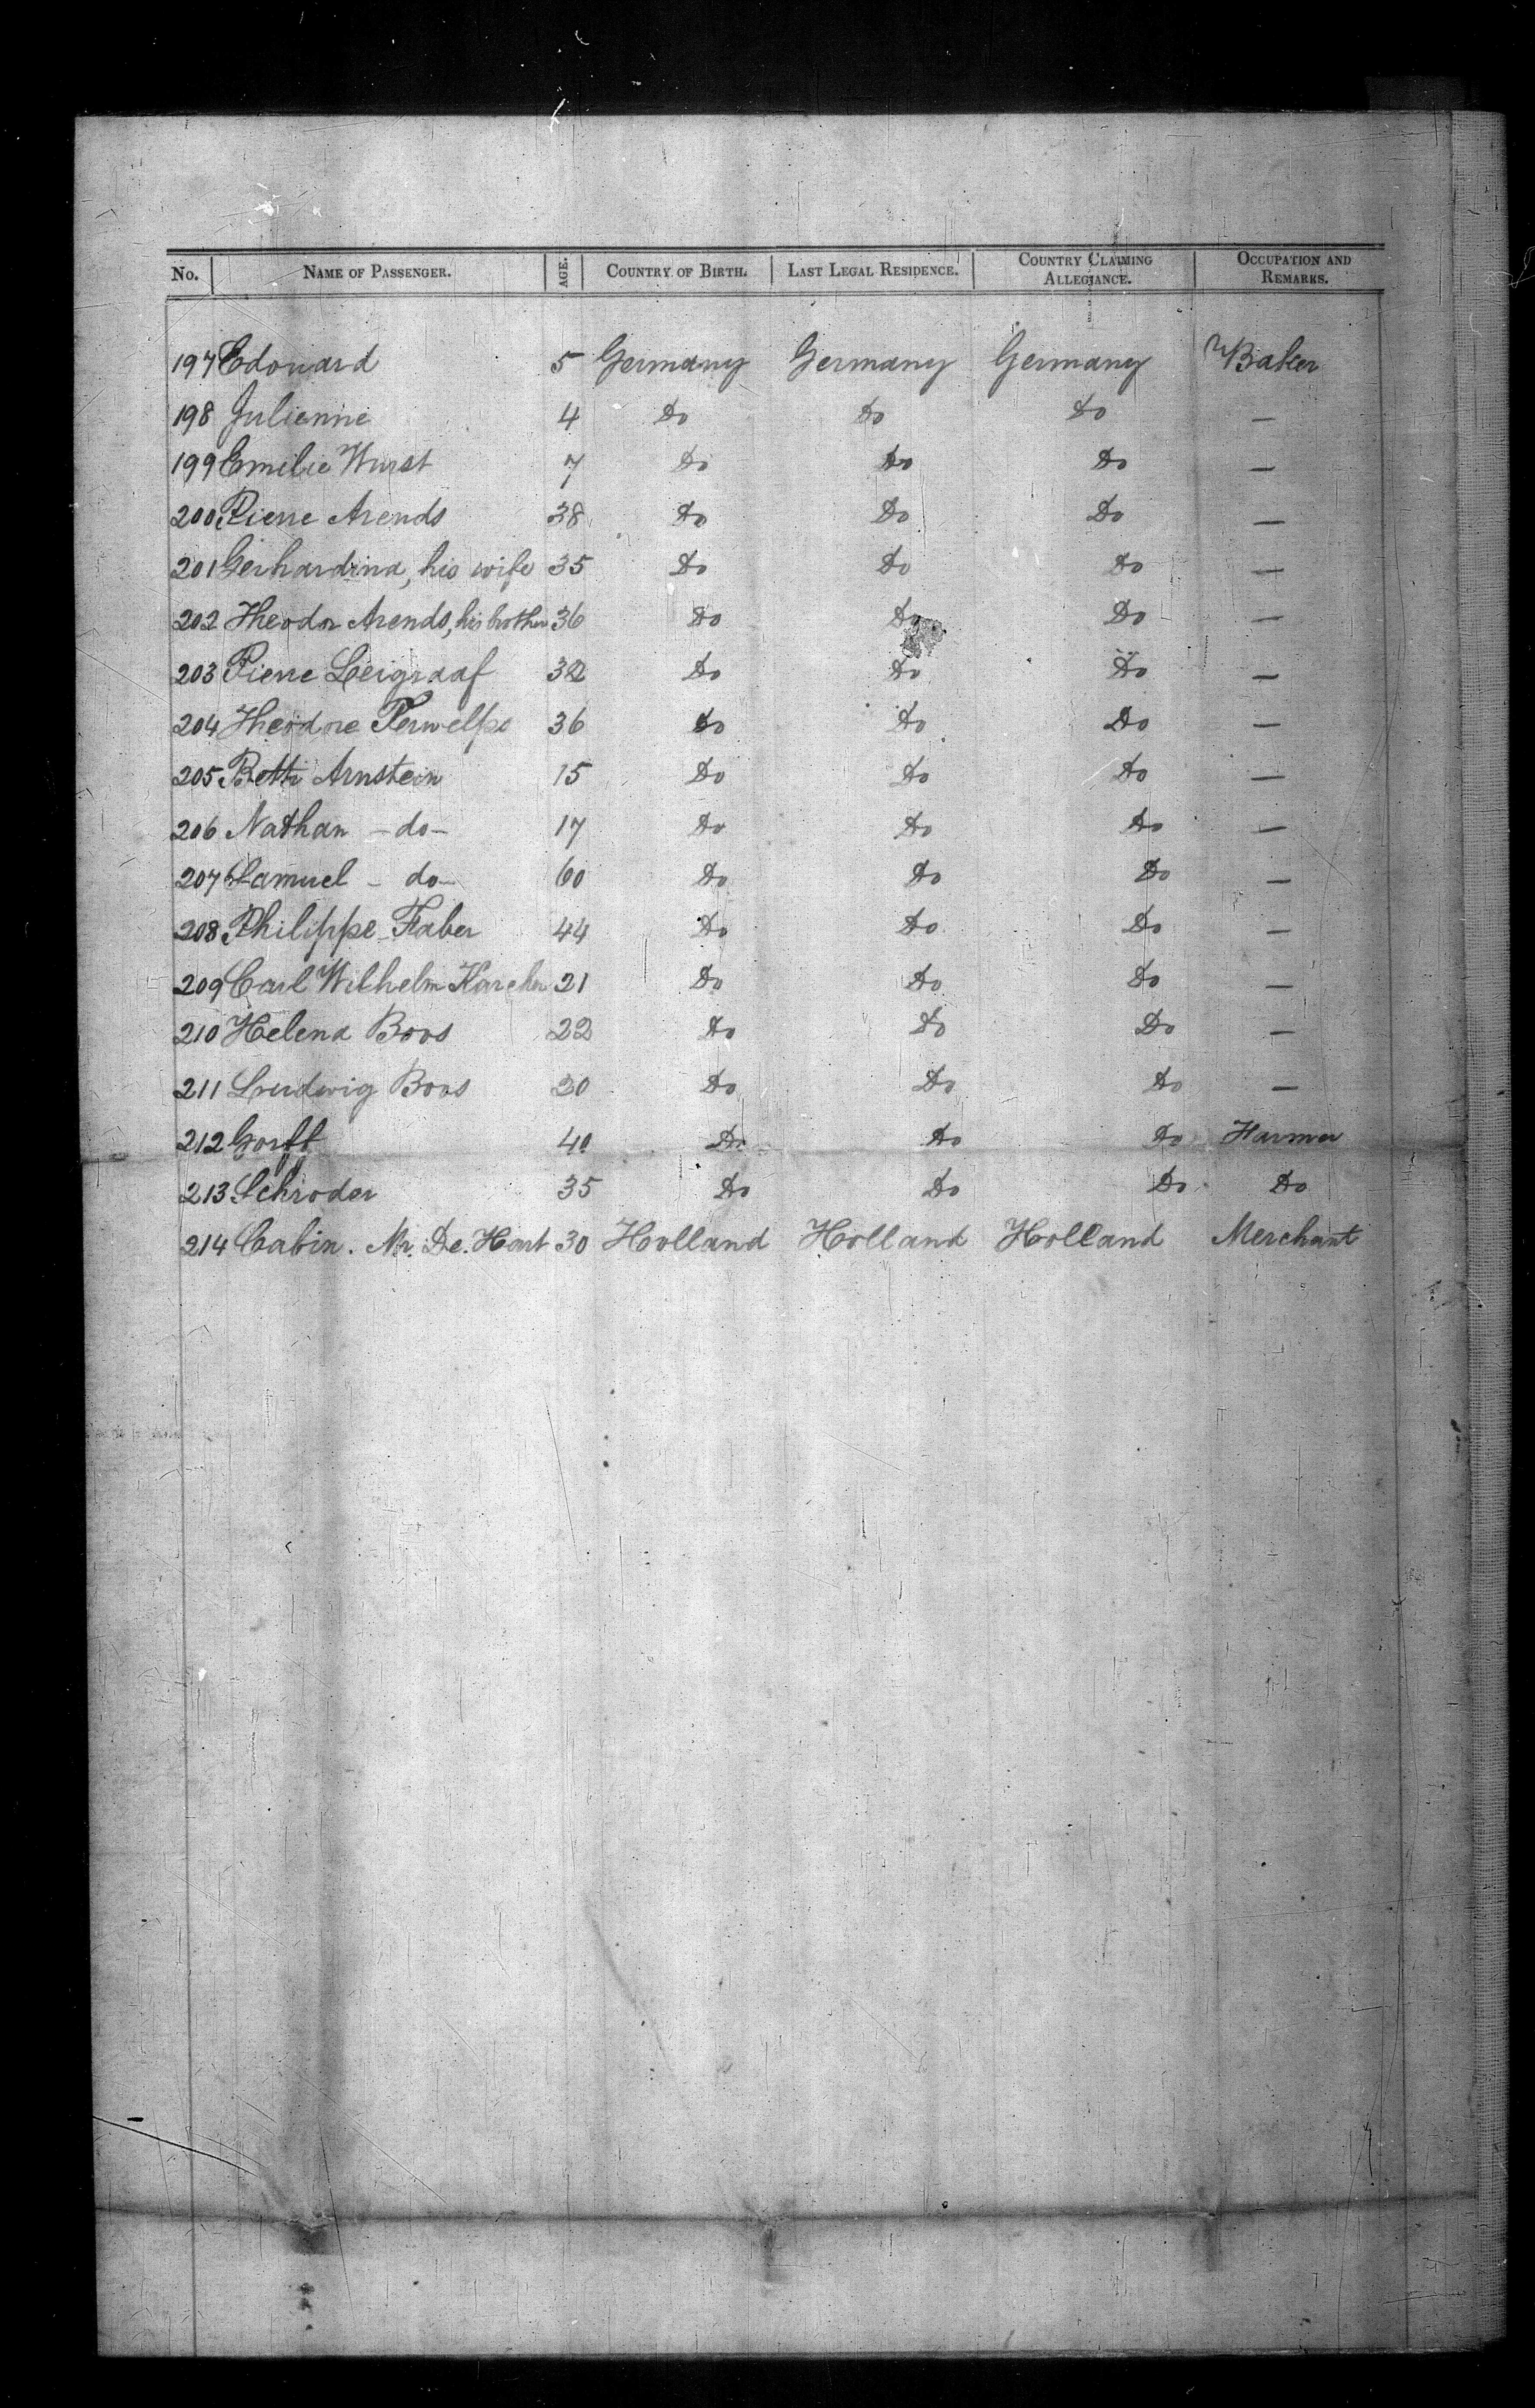 No. NAME OF PASSENGER. AGE. COUNTRY OF BIRTH. LAST LEGAL RESIDENCE. COUNTRY CLAIMING ALLEGIANCE. OCCUPATION AND REMARKS.
197 Edouard 5 Germany Germany Germany Baker
198 Julienne 4 Do Do Do —
199 Emilie Wurst 7 Do Do Do —
200 Pierre Arends 38 Do Do Do —
201 Gerhardina, his wife 35 Do Do Do —
202 Theodor Arends, his brother 36 Do Do Do —
203 Pierre Leigraaf 32 Do Do Do —
204 Theodore Terwelpe 36 Do Do Do —
205 Betti Arnstein 15 Do Do Do —
206 Nathan – do – 17 Do Do Do —
207 Samuel – do – 60 Do Do Do —
208 Philippe Faber 44 Do Do Do —
209 Carl Wilhelm Karcher 21 Do Do Do —
210 Helena Boos 22 Do Do Do —
211 Ludwig Boos 20 Do Do Do —
212 40 Do Do Do Farmer
213 Schroder 35 Do Do Do Do
214 Cabin. Mr. De. Hart 30 Holland Holland Holland Merchant